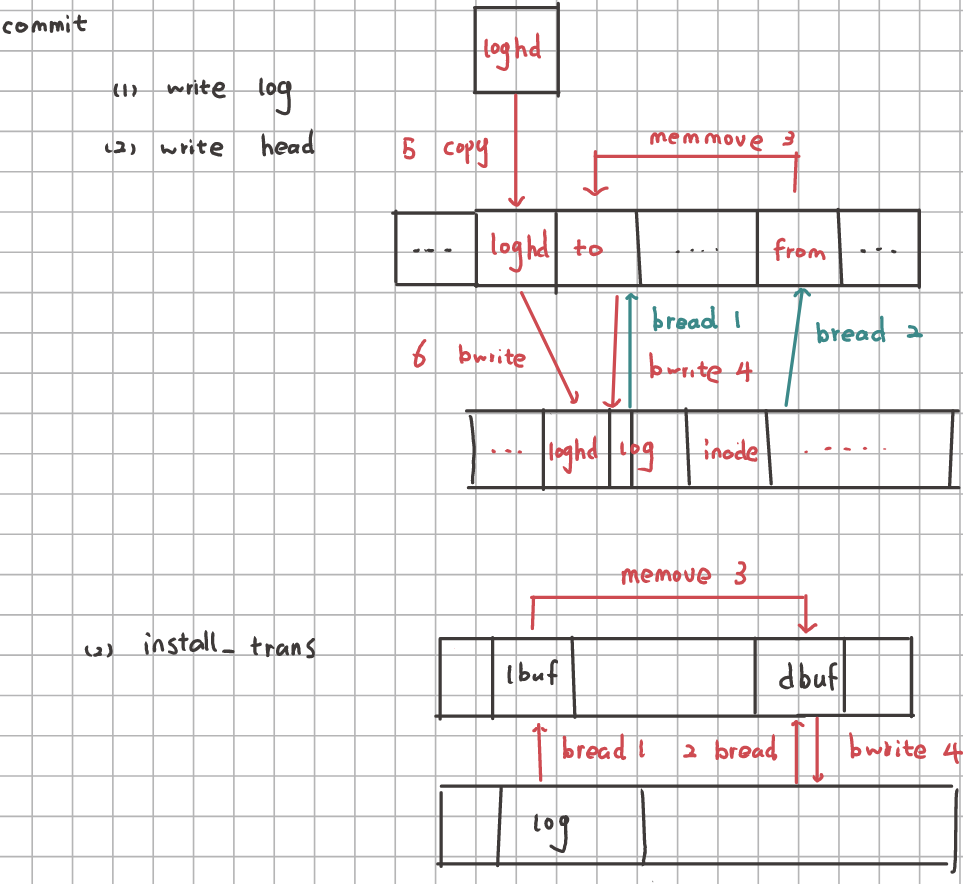 commit
loghd
(1) write log
(2) write head
5 copy
memmove 3
---- loghd to .... from ---
bread 1
bread 2
6 bwrite
bwrite 4
... loghd log inode ......
memove 3
(2) install_ trans
lbuf dbuf
bread 1 2 bread bwrite 4
log